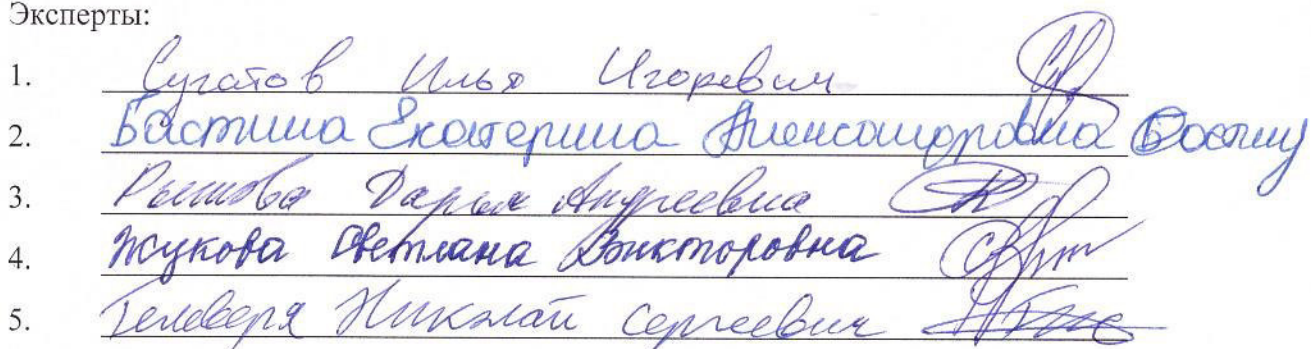 Эксперты:
1. Сугатов Илья Игоревич
2. Бастина Екатерина Александровна
3. Дарья Андреевна
4. Жукова Светлана Викторовна
5. Николай Сергеевич